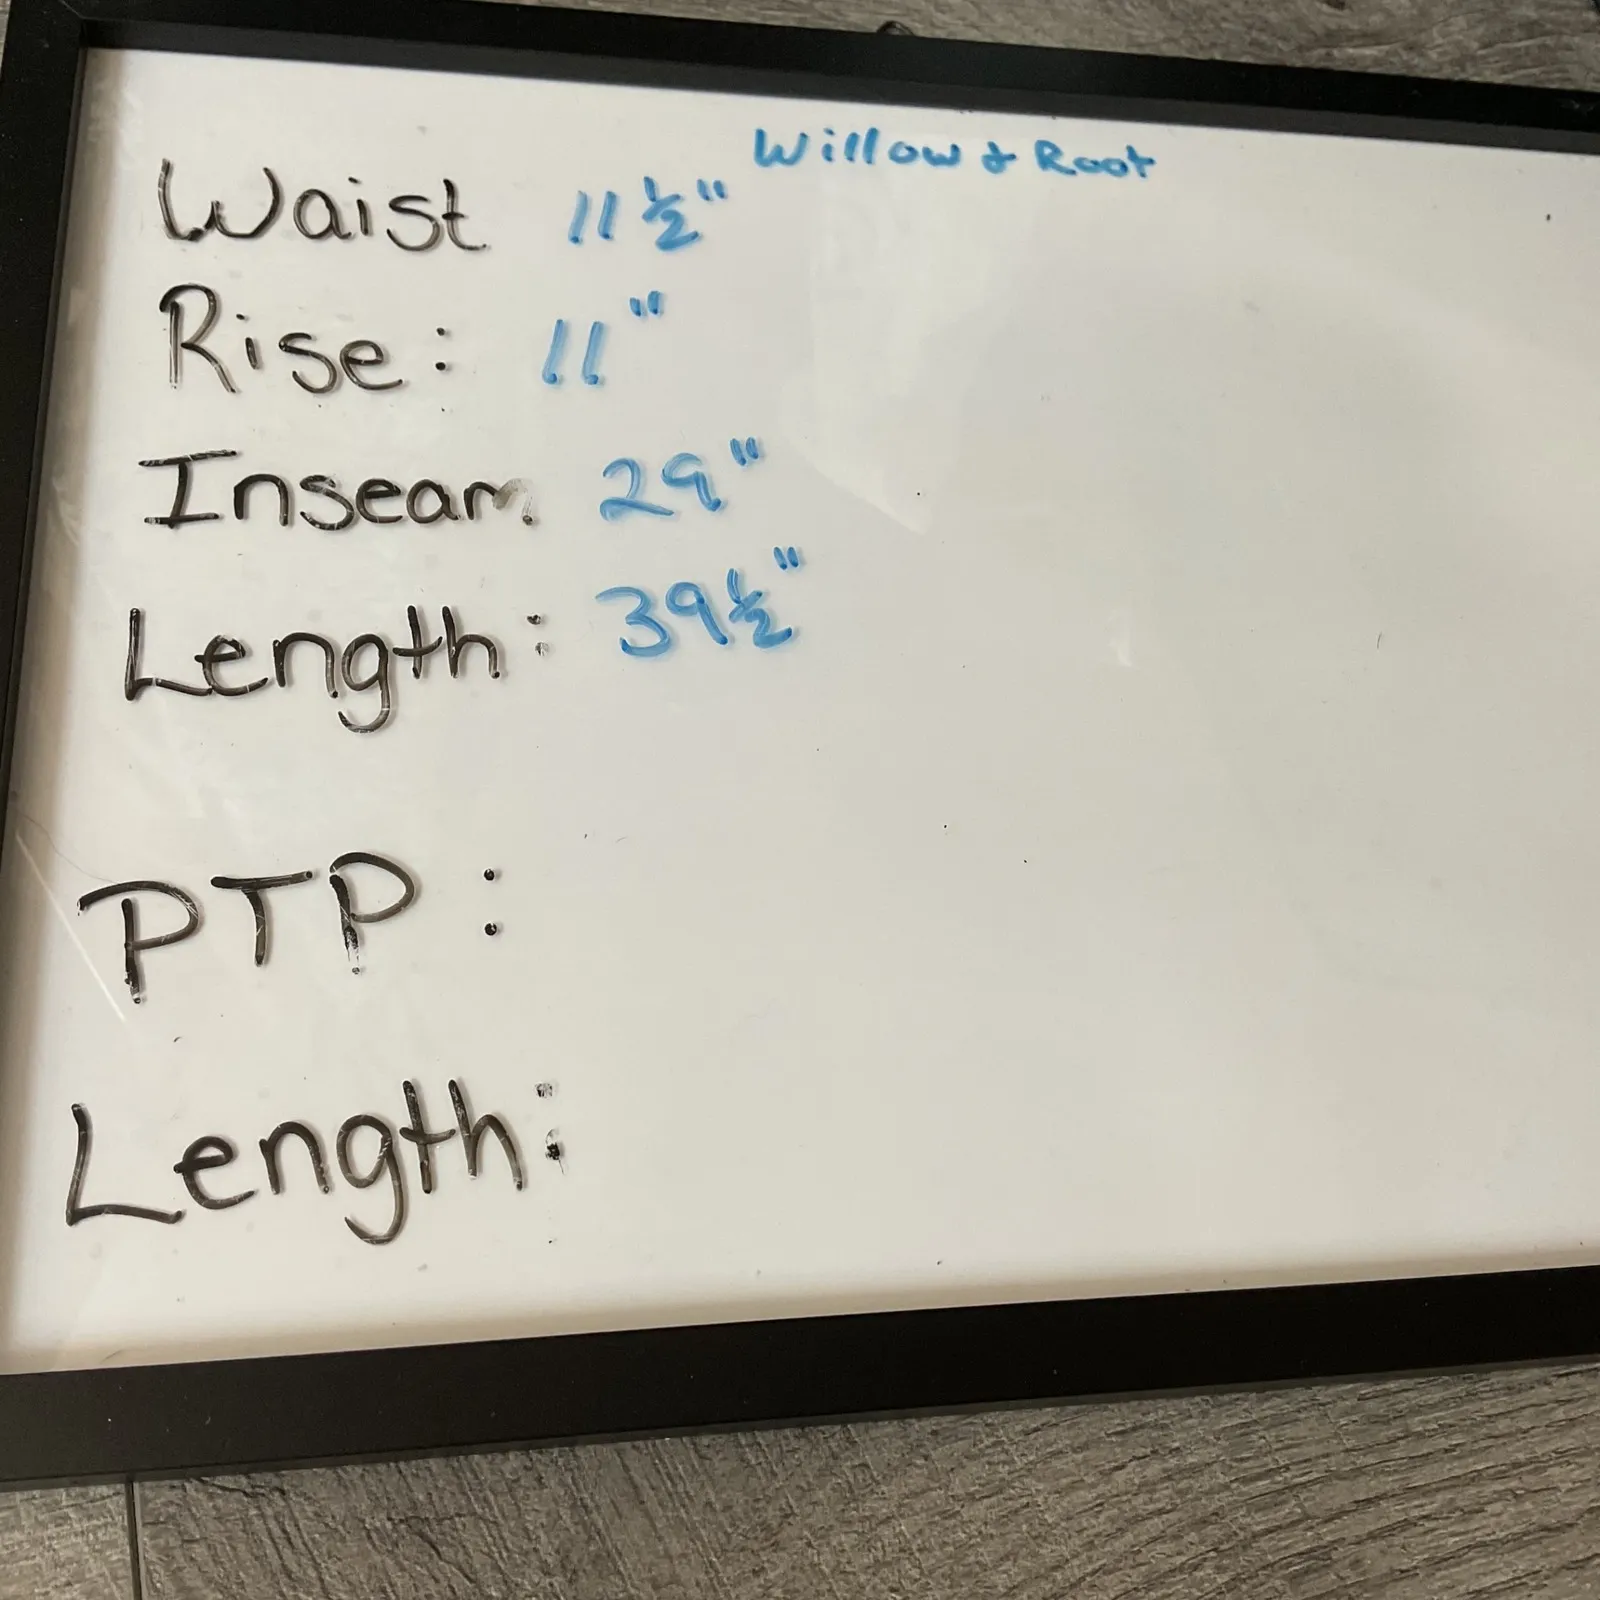 Willow & Root
Waist 11 ½"
Rise: 11"
Inseam 29"
Length: 39 ½"
PTP :
Length: